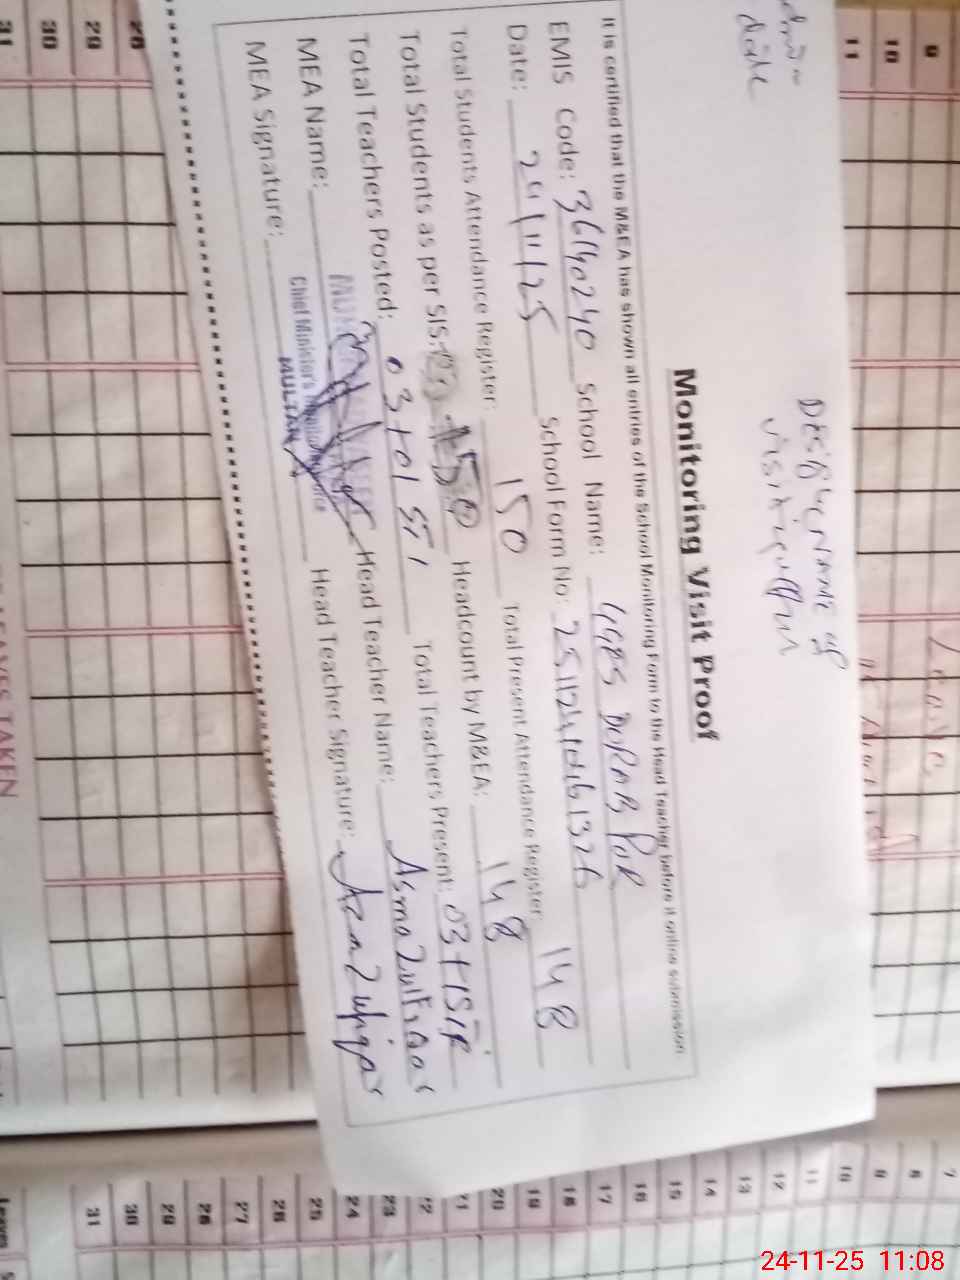 DESG4, NAME of
date
Monitoring Visit Proof
It is certified that the M&EA has shown all entries of the School Monitoring Form to the Head Teacher before it online submission
EMIS Code: 36140240 School Name: GGPS DORAB PUR
Date: 24/11/25 School Form No:
Total Students Attendance Register: 150 Total Present Attendance Register: 148
Total Students as per SIS: 150 Headcount by M&EA: 148
Total Teachers Posted: 03+01 STI Total Teachers Present:
MEA Name: Head Teacher Name: Asma Zulfiqar
MEA Signature: Head Teacher Signature: Asma Zulfiqar
Chief Minister's
MULTAN
Leave
LEAVES TAKEN
9
10
11
28
29
30
31
7
8
9
10
11
12
13
14
15
16
17
18
19
20
21
22
23
24
25
26
27
28
29
30
31
24-11-25 11:08